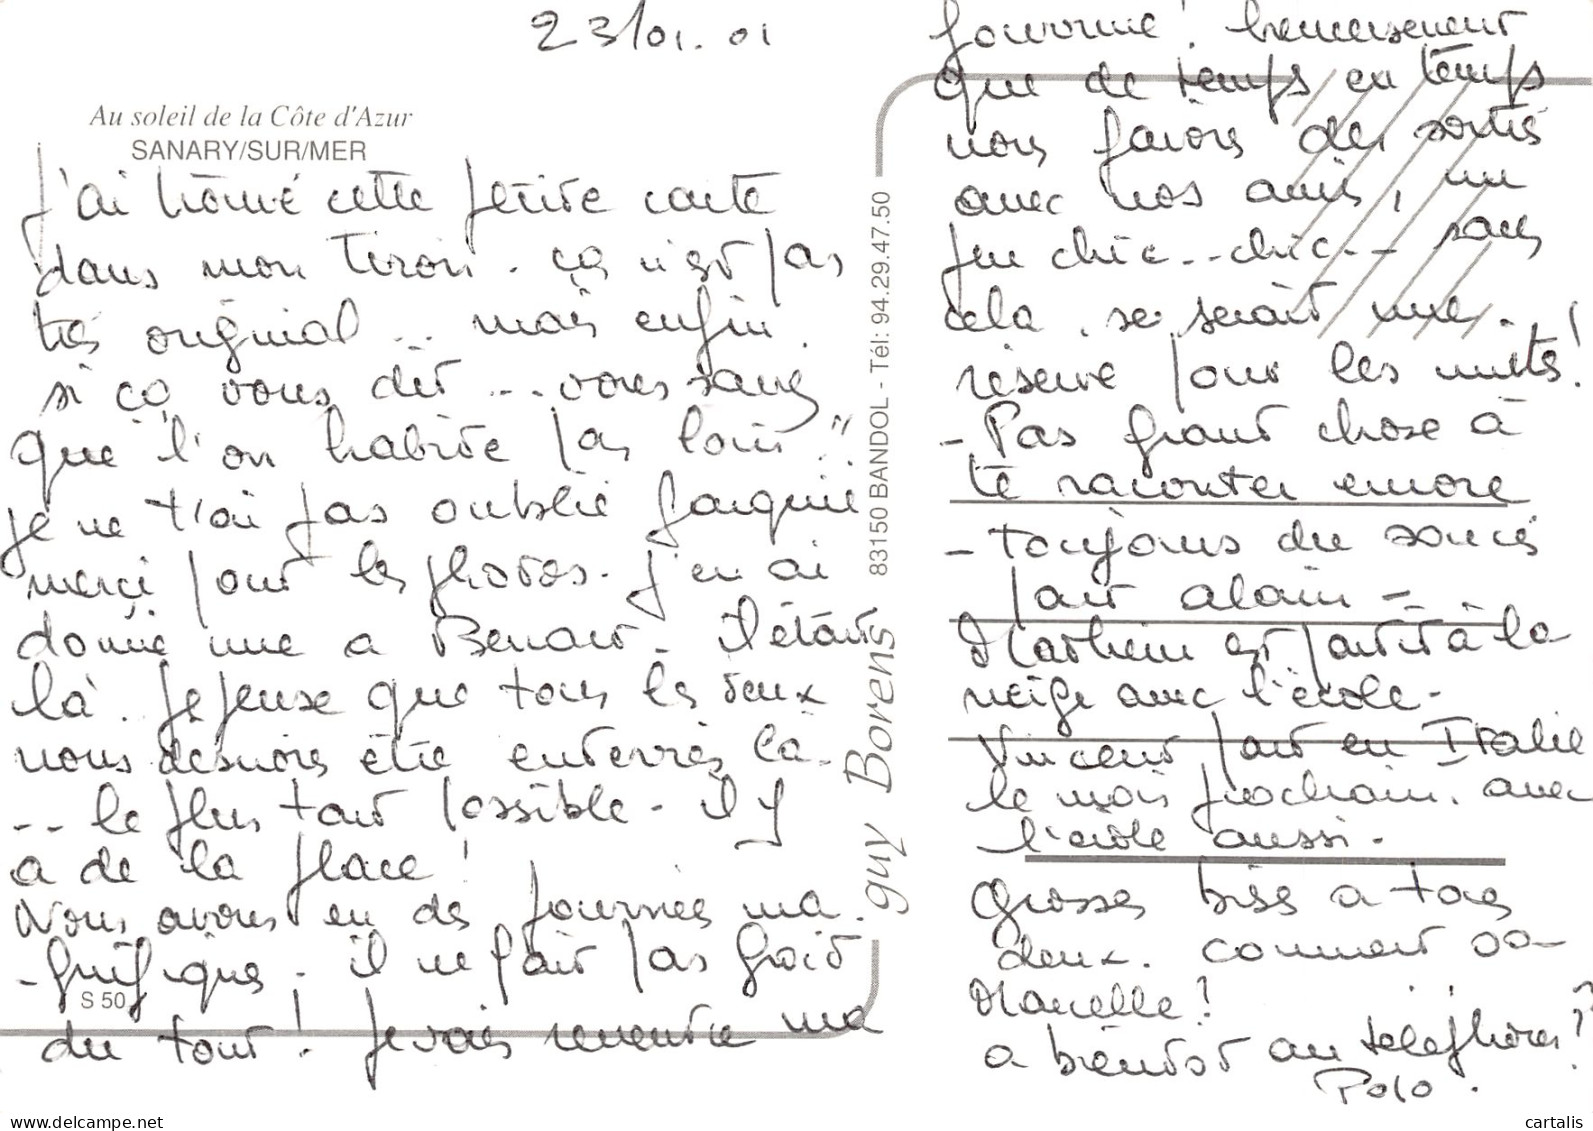 23/01.01
Au soleil de la Côte d'Azur
SANARY/SUR/MER
J'ai trouvé cette petite carte
dans mon tiroir. ça n'est pas
très original... mais enfin.
si ça vous dit... vous savez
que l'on habite pas loin!!
je ne t'ai pas oublié
merci pour les photos. J'en ai
donné une a Benoit. Il était
là. Je pense que tous les deux
nous desirons être enterrés là.
-- le plus tard possible - il y
a de la place!
Nous avons eu des journées ma
-gnifiques. il ne fait pas froid
du tout! Je vais remettre ma
S 50
guy Borens 83150 BANDOL - Tél: 94.29.47.50
fourrure! heureusement
que de temps en temps
nous faisons des sorties
avec nos amis, un
peu chic..chic.-- sans
cela, se serait une
réserve pour les mites!
- Pas grand chose à
te raconter encore
- toujours du soucis
pour alain -
Mathieu est parti à la
neige avec l'école -
Vincent part en Italie
le mois prochain. avec
l'école aussi.
Grosses bises a tous
deux. comment va-
Marcelle?
a bientôt au téléphone??
Polo.
www.delcampe.net
cartalis